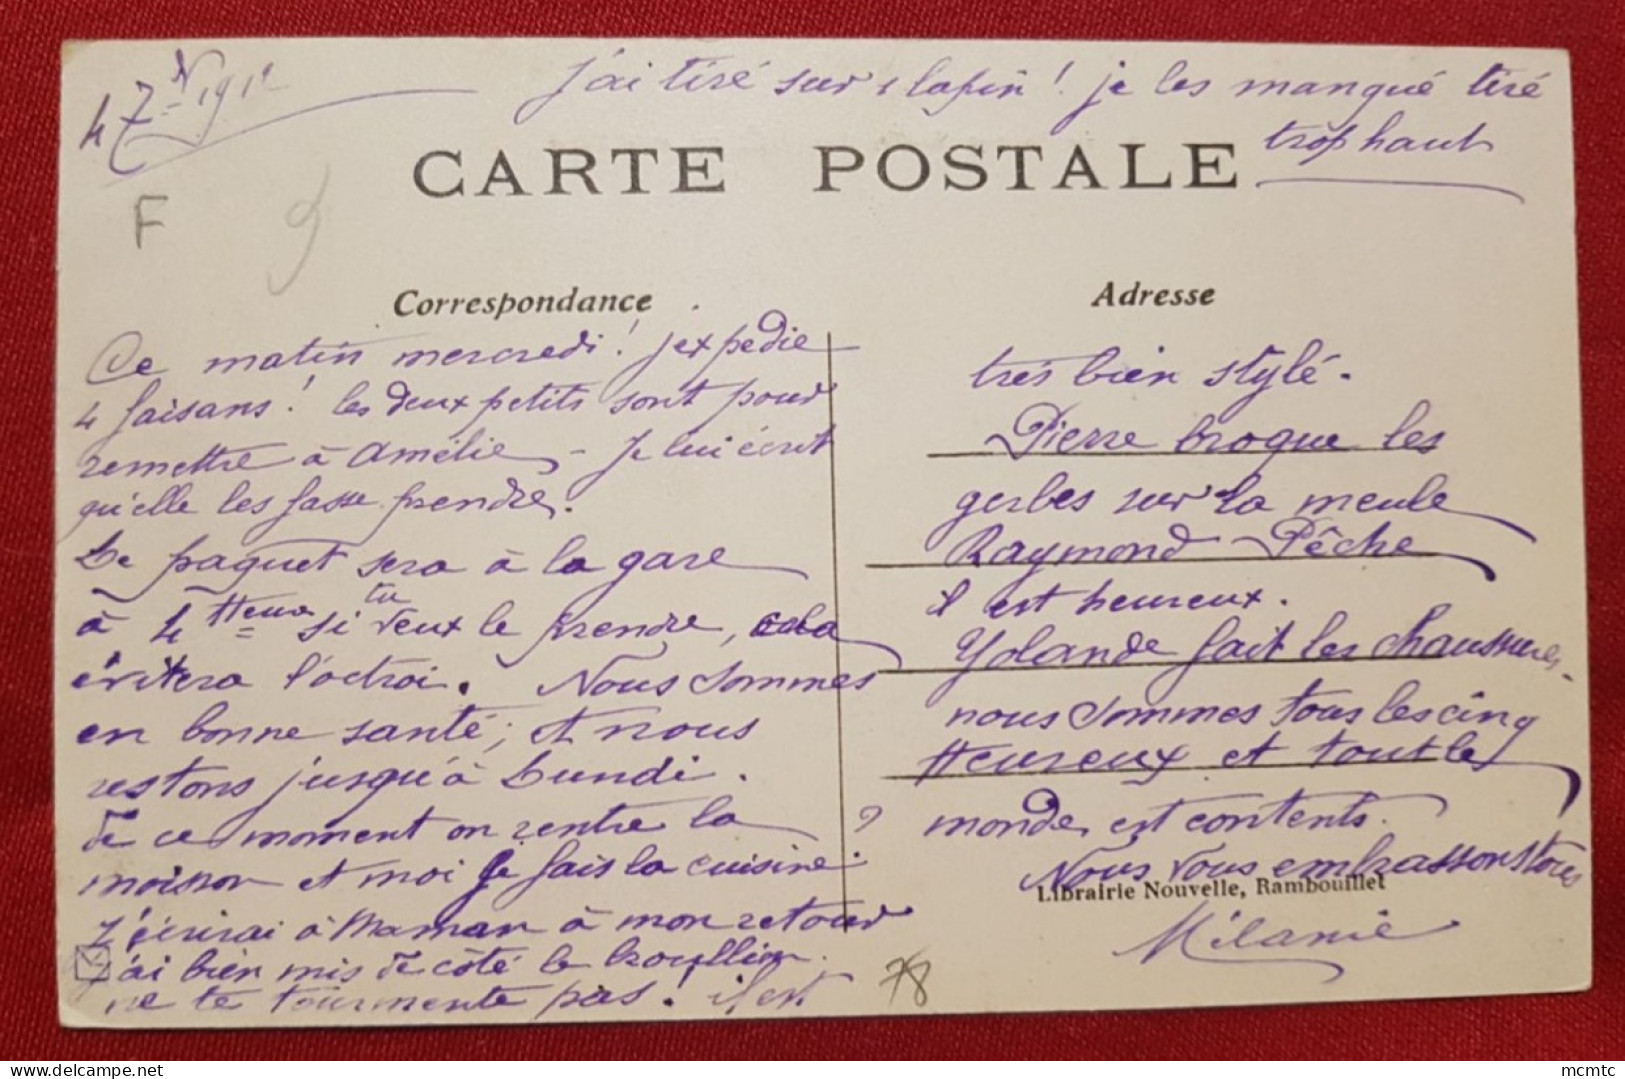 47 N 1912
j'ai tiré sur 1 lapin ! je les manqué tiré
trop haut
CARTE POSTALE
F
Correspondance
Ce matin mercredi ! j'expédie
4 faisans ! les deux petits sont pour
remettre à Amélie - Je lui écrit
qu'elle les fasse prendre.
Le paquet sera à la gare
à 4 heur si tu veux le prendre, cela
évitera l'octroi. Nous sommes
en bonne santé ; et nous
restons jusqu'à Lundi.
de ce moment on rentre la
moisson et moi je fais la cuisine.
J'écrirai à Maman à mon retour
j'ai bien mis de côté le brouillon
ne te tourmente pas ! il est
78
Adresse
très bien stylé.
Pierre broque les
gerbes sur la meule
Raymond Pêche
il est heureux.
Yolande fait les chaussures
nous sommes tous les cinq
Heureux et tout le
monde est contents.
Nous vous embrassons tous
Librairie Nouvelle, Rambouillet
Mélanie
mcmtc